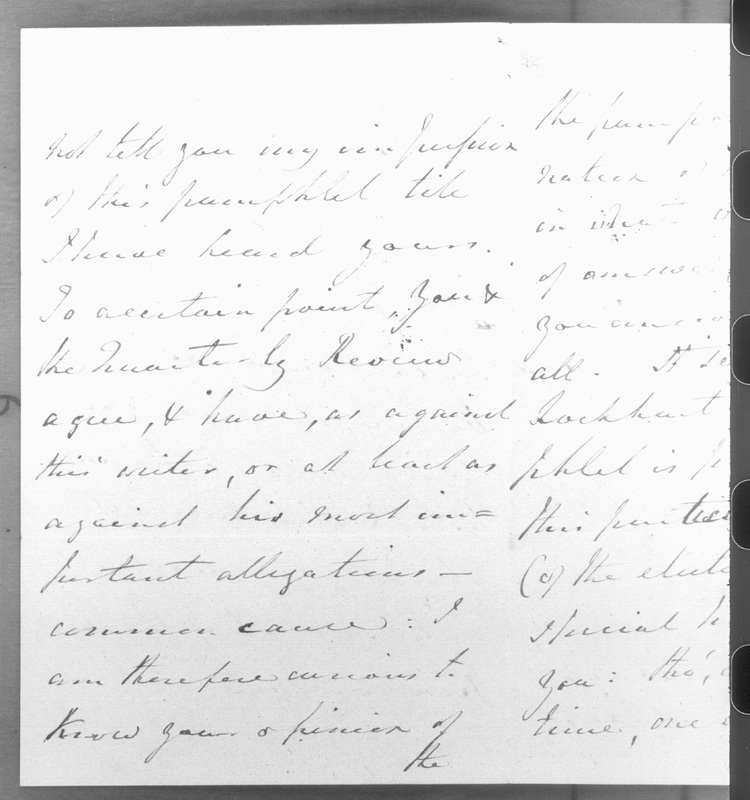 not tell you my impression
of this pamphlet till
I have heard yours.
To a certain point, you &
the Quarterly Review
agree, & have, as against
this writer, or at least as
against his most im=
portant allegations—
common cause: I
am therefore curious to
know your opinion of
the
the pamp
nature of
in what
of answe
you
all. It
Lockhart
phlet is
this
(of the
you: tho',
time, one